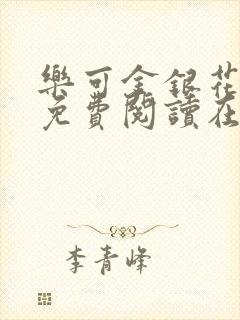 樂可金銀花
免費閱讀在
李青峰